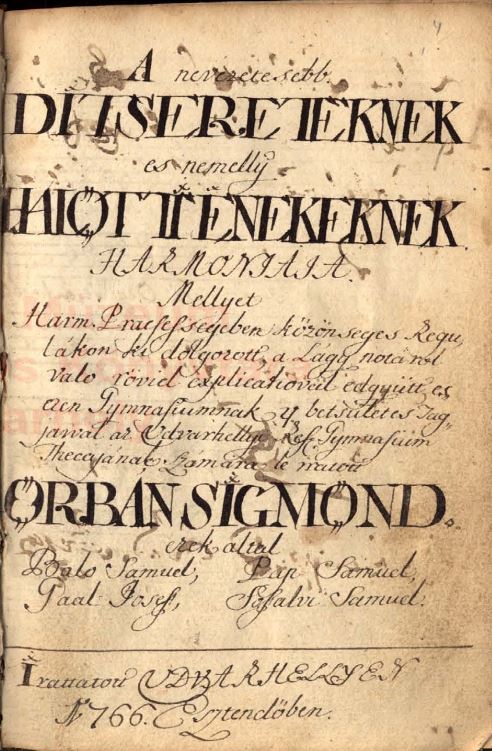 A nevezetesebb
DITSERETEKNEK
es nemelly
HALOTTI ENEKEKNEK.
HARMONIAJA.
Mellyet
Harm. Praesességeben közönséges Regu,
lákon ki dolgozott, a Lagy notárol
valo rövid explicatioval edgyütt, es
ezen Gymnasiumnak betsületes Tag-
jaival az Udvarhellyi Ref. Gymnasium
Thecajának számára le iratott
ORBAN SIGMOND.
ezek által
Balo Samuel, Pap Samuel,
Gaal Josef, Sofalvi Samuel
Irattatott UDVARHELLYEN
1766. Esztendöben.